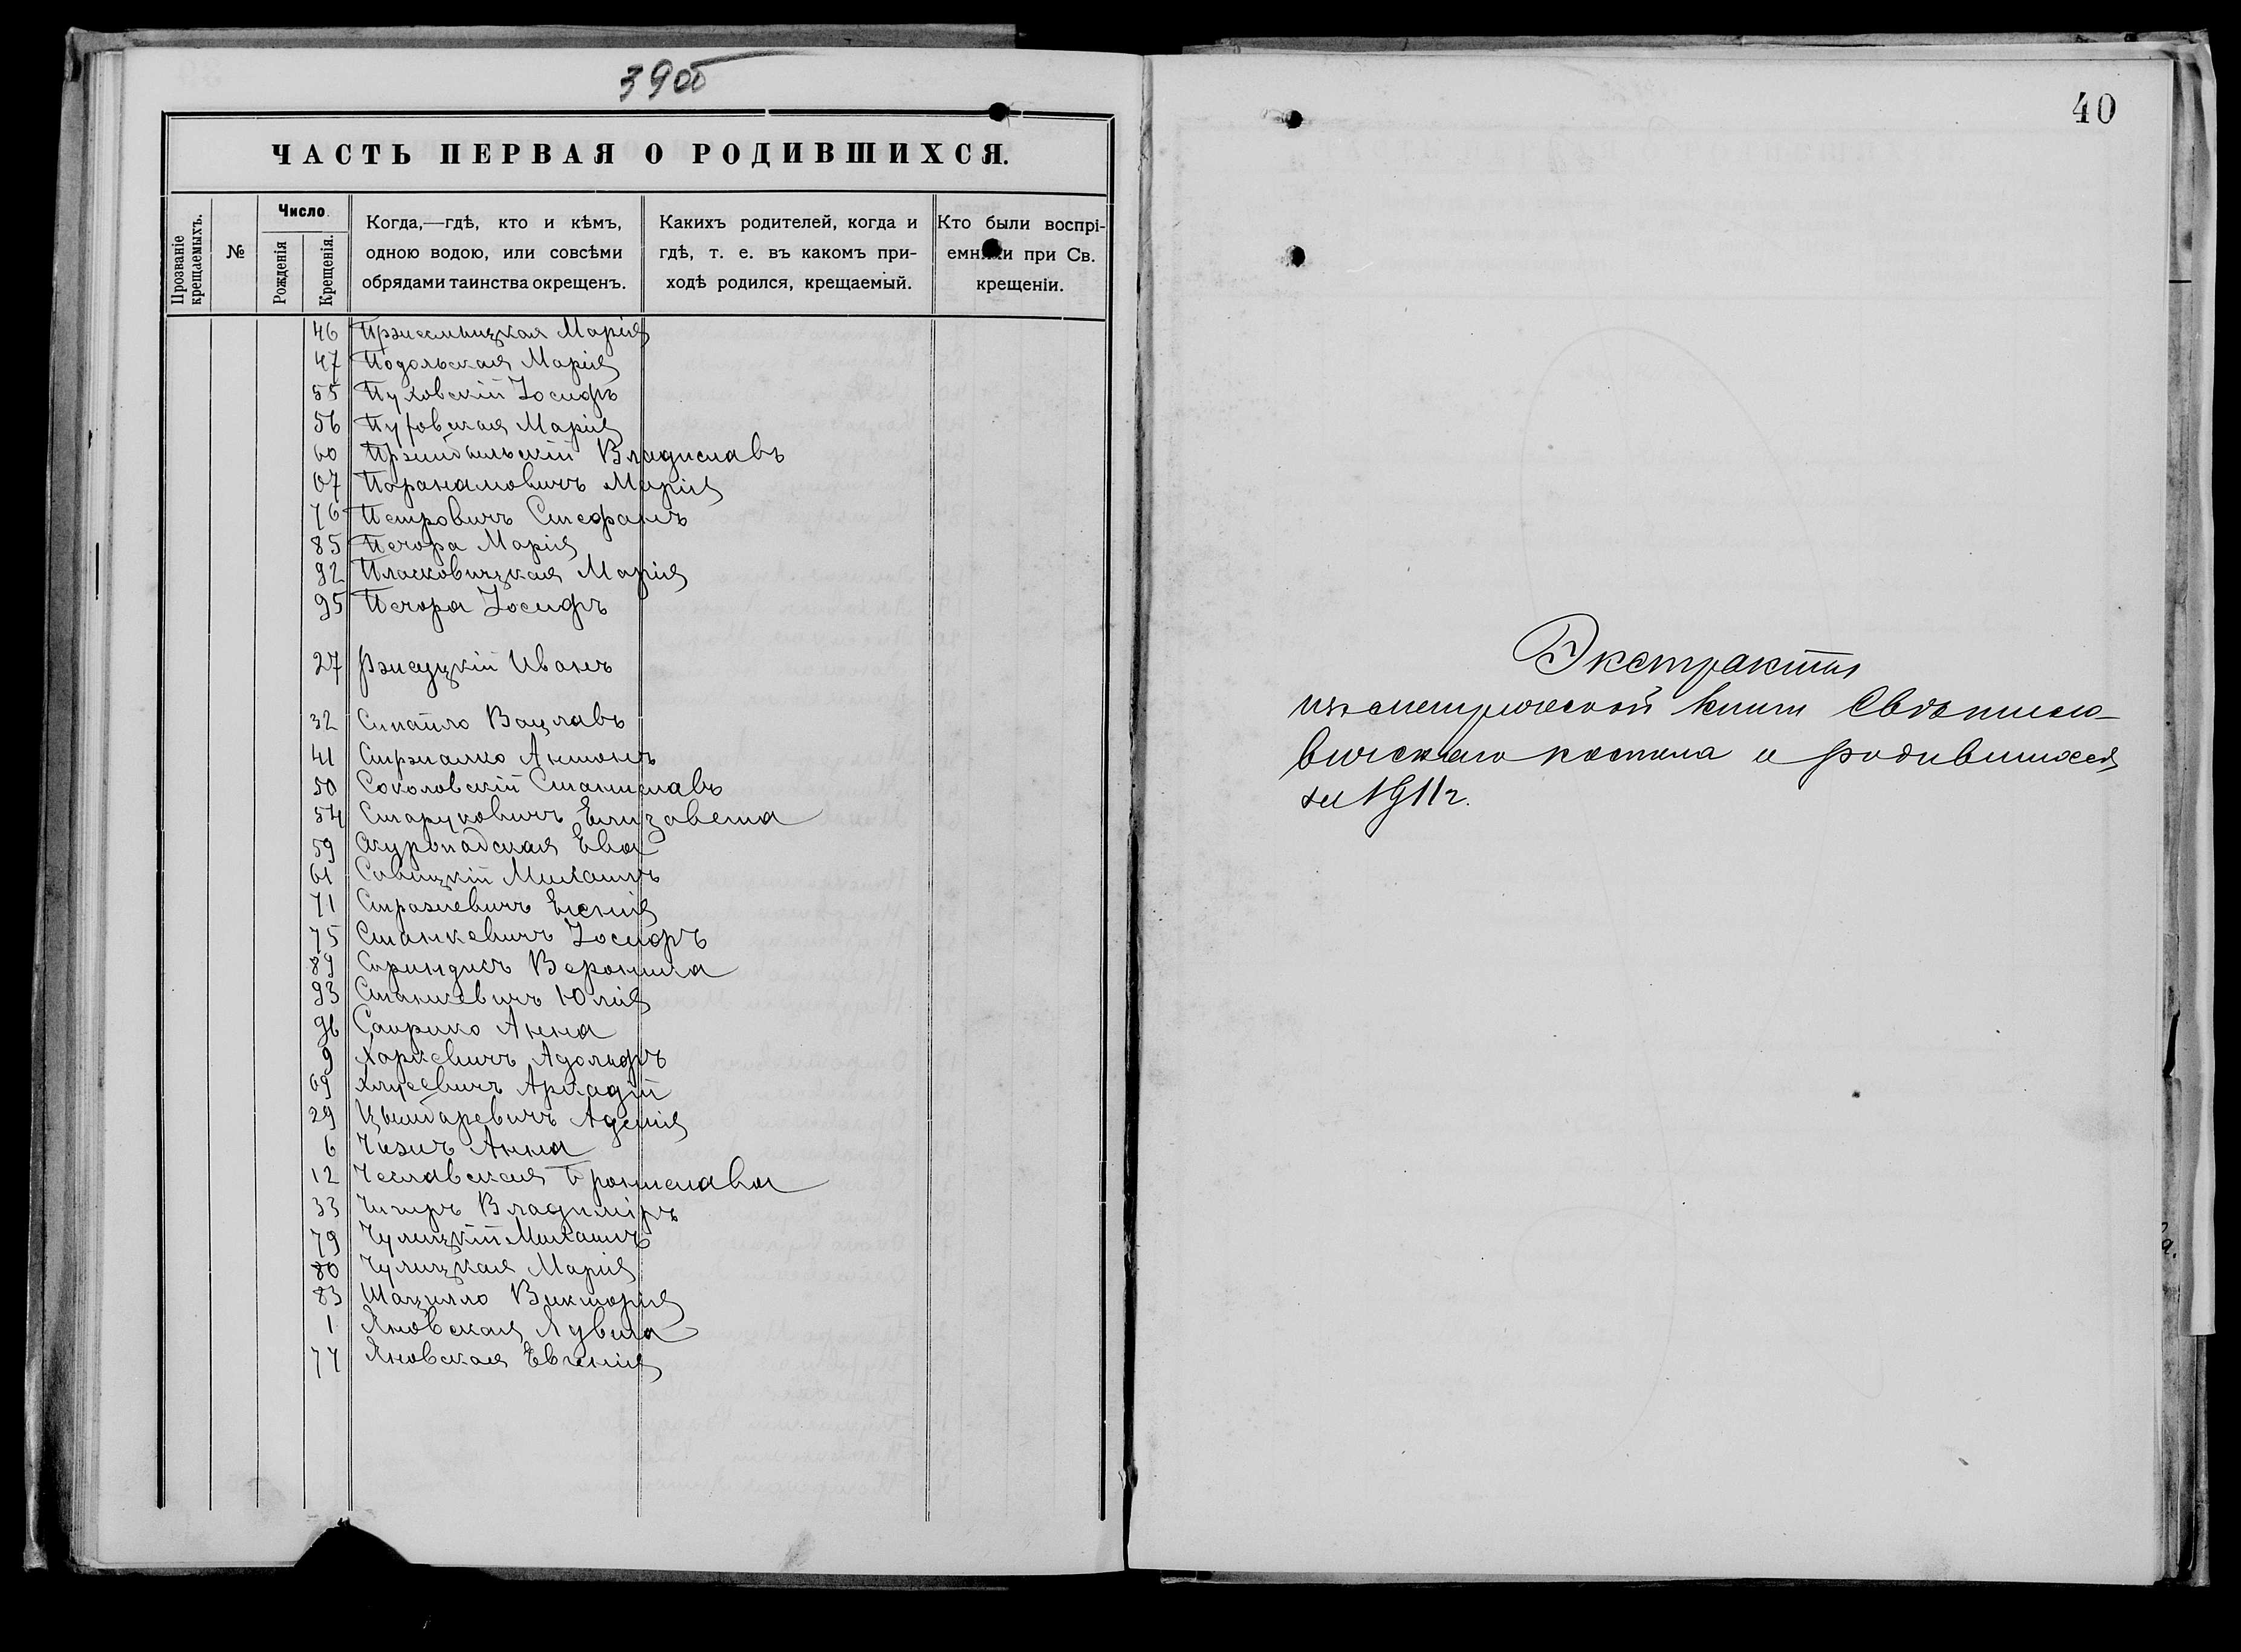 39об
ЧАСТЬ ПЕРВАЯ О РОДИВШИХСЯ.
Прозваніе крещаемыхъ.
№
Число
Рожденія
Крещенія.
Когда,—гдѣ, кто и кѣмъ,
одною водою, или совсѣми
обрядами таинства окрещенъ.
Какихъ родителей, когда и
гдѣ, т. е. въ какомъ при-
ходѣ родился, крещаемый.
Кто были воспрі-
емники при Св.
крещеніи.
46 Марія
47 Подольская Марія
55 Пуховскій Іосифъ
56 Марія
60 Владиславъ
67 Марія
76 Петровичъ Стефанъ
85 Печора Марія
92 Пласковицкая Марія
95 Печора Іосифъ
27 Ржеуцкій Иванъ
32 Сипайло Вацлавъ
41 Стржалко Антонъ
50 Соколовскій Станиславъ
54 Старуковичъ Елизавета
59 Ева
61 Савицкій Михаилъ
71 Стражевичъ
75 Станкевичъ Іосифъ
89 Вероника
93 Станкевичъ Юлія
96 Анна
9 Харкевичъ Адольфъ
69 Хлусевичъ Аркадій
29 Цымбаревичъ
6 Чизичъ Анна
12 Чеславская Брониславa
33 Чигиръ Владиміръ
79 Чулицкій Михаилъ
80 Чулицкая Марія
83 Шацилло Викторія
1 Яновская Ядвига
77 Яновская Евгенія
40
Экстрактъ
изъ метрической книги
костела о родившихся
за 1911 г.